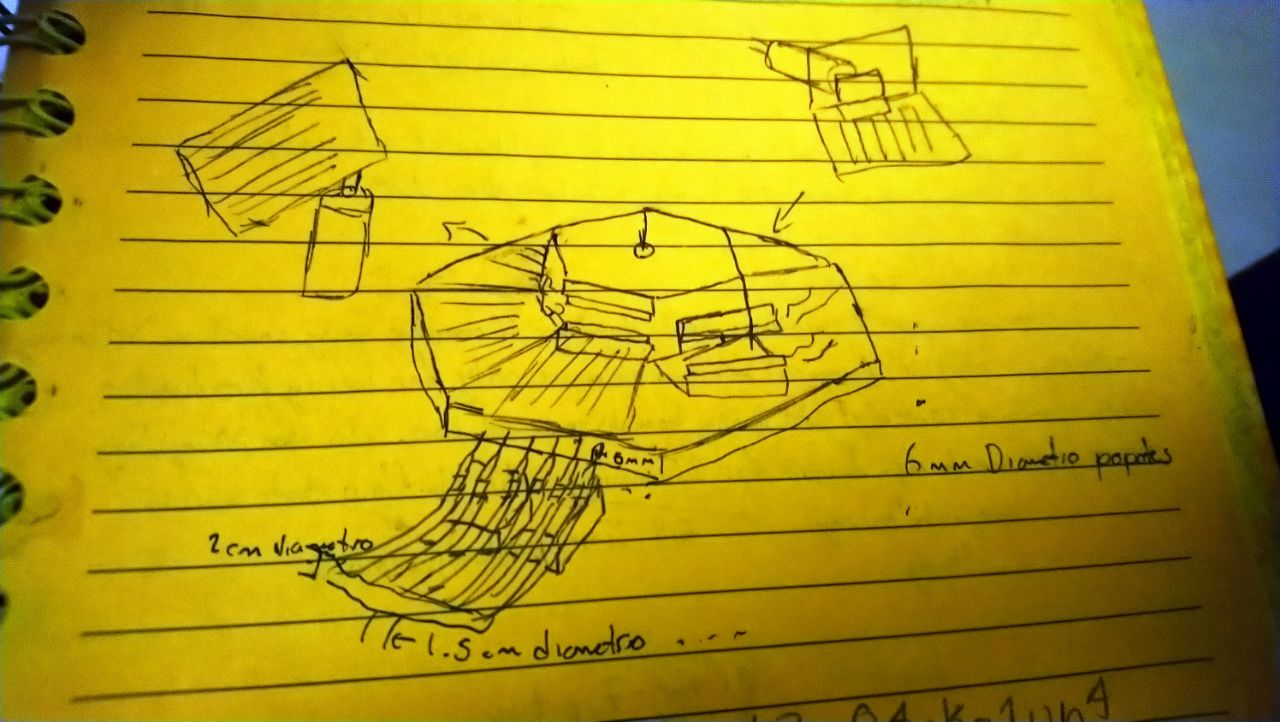 6mm
6mm Diametro popotes
2cm diametro
1.5 cm diametro